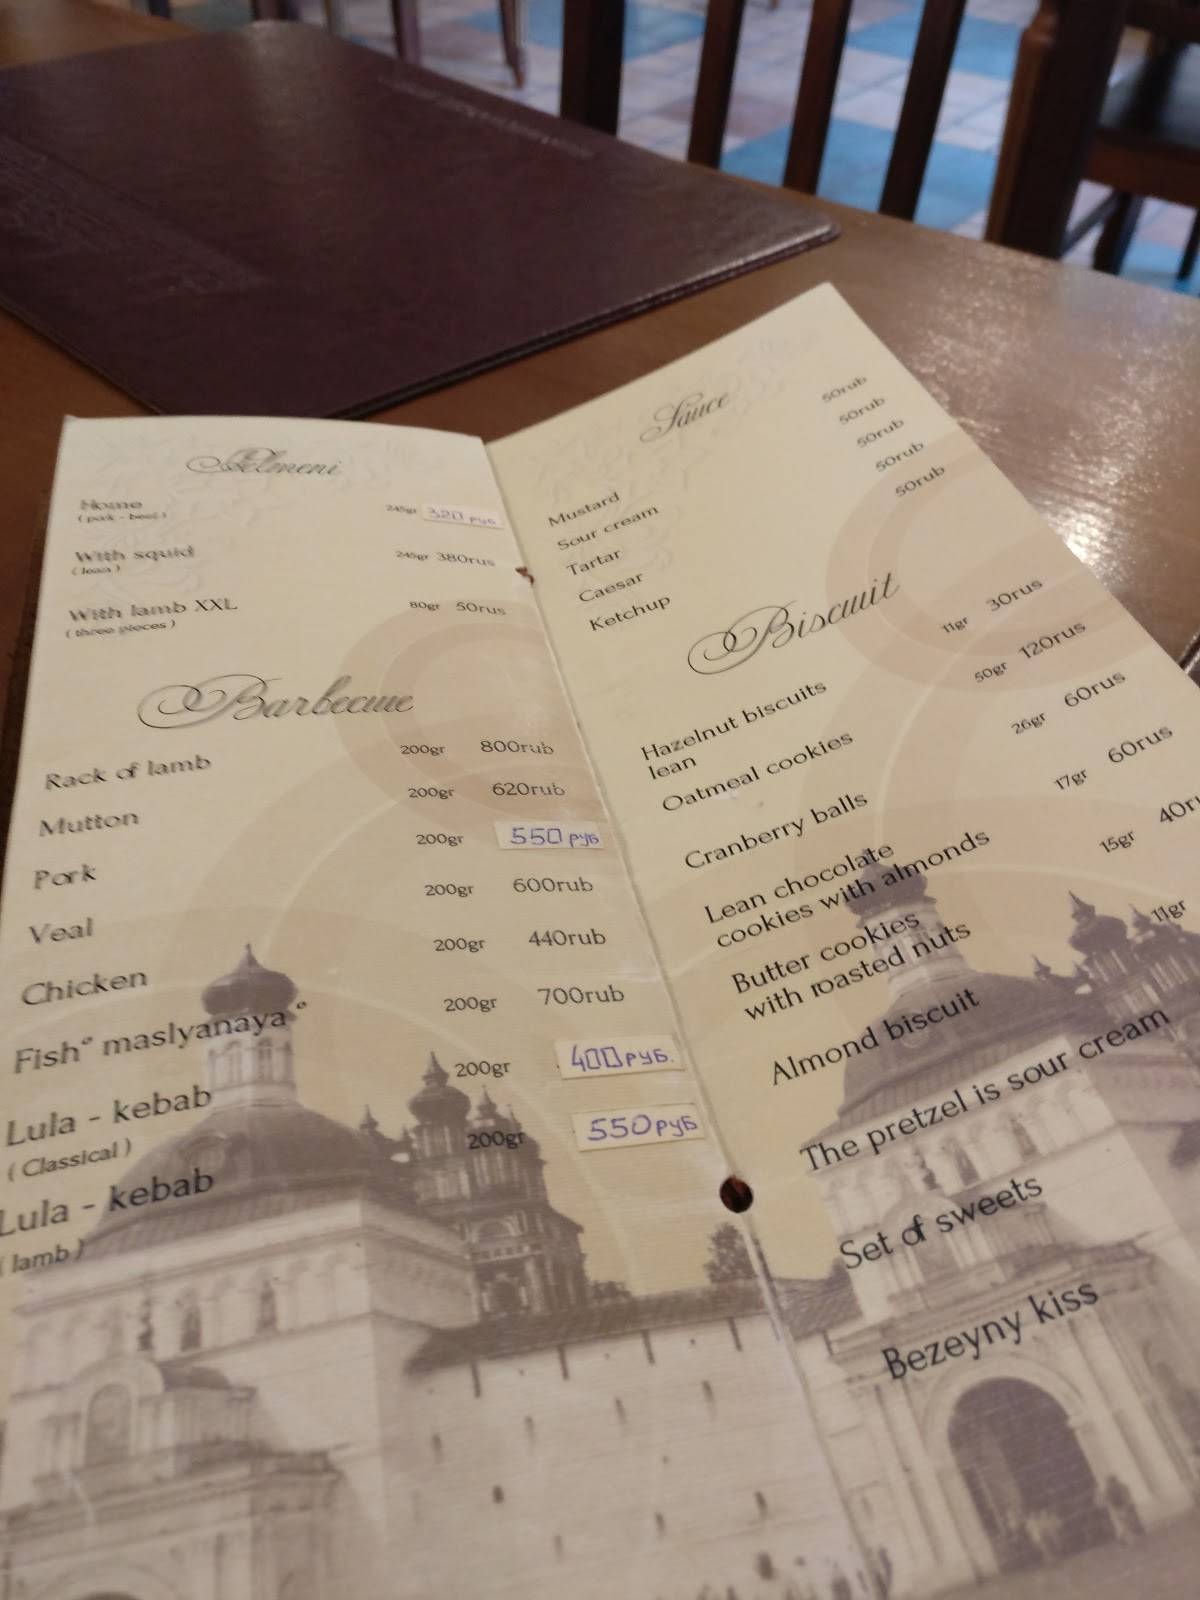 Pelmeni
Home 245gr 320 руб
( pork - beef )
With squid 245gr 380rus
( lean )
With lamb XXL 80gr 50rus
( three pieces )
Barbecue
Rack of lamb 200gr 800rub
Mutton 200gr 620rub
Pork 200gr 550 руб
Veal 200gr 600rub
Chicken 200gr 440rub
Fish" maslyanaya" 200gr 700rub
Lula - kebab 200gr 400 руб.
( Classical )
Lula - kebab 200gr 550 руб
( lamb )
Sauce
Mustard 50rub
Sour cream 50rub
Tartar 50rub
Caesar 50rub
Ketchup 50rub
Biscuit
Hazelnut biscuits 11gr 30rus
lean
Oatmeal cookies 50gr 120rus
Cranberry balls 26gr 60rus
Lean chocolate 17gr 60rus
cookies with almonds
Butter cookies 15gr
with roasted nuts
Almond biscuit 11gr
The pretzel is sour cream
Set of sweets
Bezeyny kiss